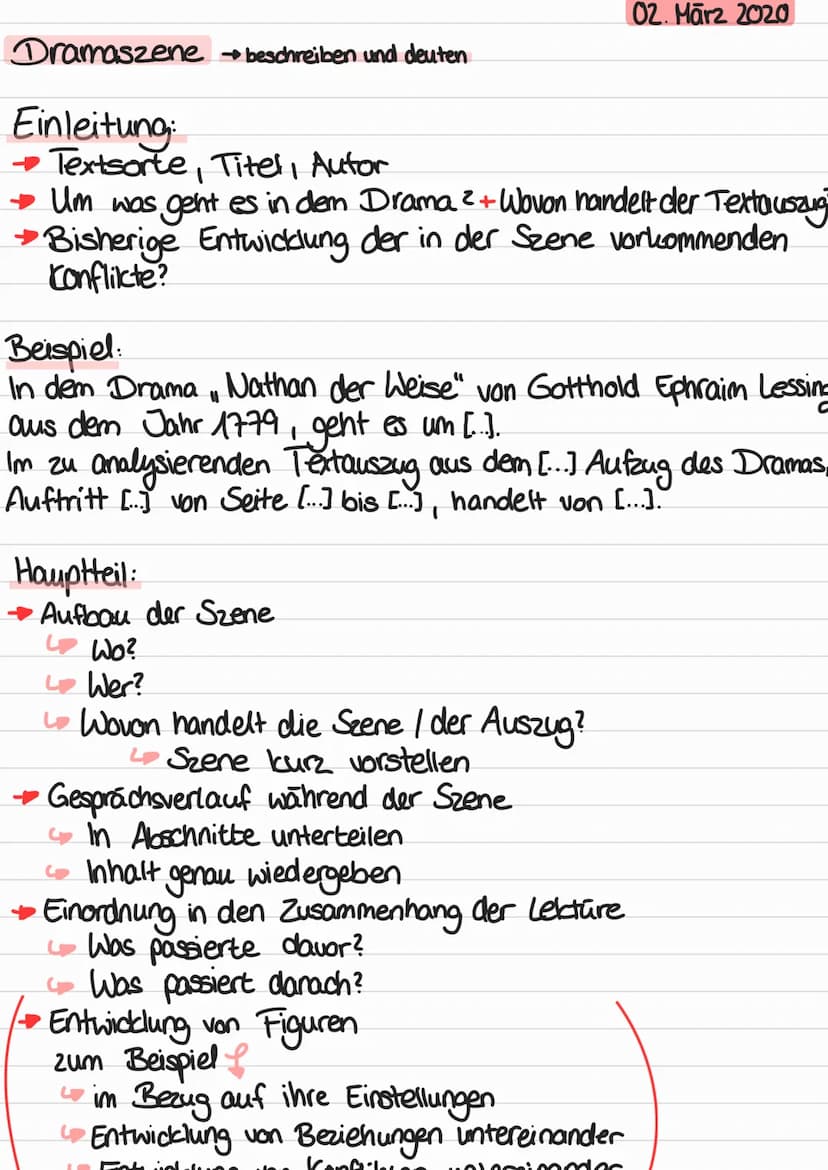 02. März 2020
Dramaszene → beschreiben und deuten
Einleitung:
→ Textsorte, Titel, Autor
→ Um was geht es in dem Drama? + Wovon handelt der Textauszug?
→ Bisherige Entwicklung der in der Szene vorkommenden
Konflikte?
Beispiel:
In dem Drama „Nathan der Weise" von Gotthold Ephraim Lessing
aus dem Jahr 1779, geht es um [...].
Im zu analysierenden Textauszug aus dem [...] Aufzug des Dramas,
Auftritt [...] von Seite [...] bis [...], handelt von [...].
Hauptteil:
→ Aufbau der Szene
↳ Wo?
↳ Wer?
↳ Wovon handelt die Szene / der Auszug?
↳ Szene kurz vorstellen
→ Gesprächsverlauf während der Szene
↳ In Abschnitte unterteilen
↳ Inhalt genau wiedergeben
→ Einordnung in den Zusammenhang der Lektüre
↳ Was passierte davor?
↳ Was passiert danach?
→ Entwicklung von Figuren
zum Beispiel
↳ im Bezug auf ihre Einstellungen
↳ Entwicklung von Beziehungen untereinander